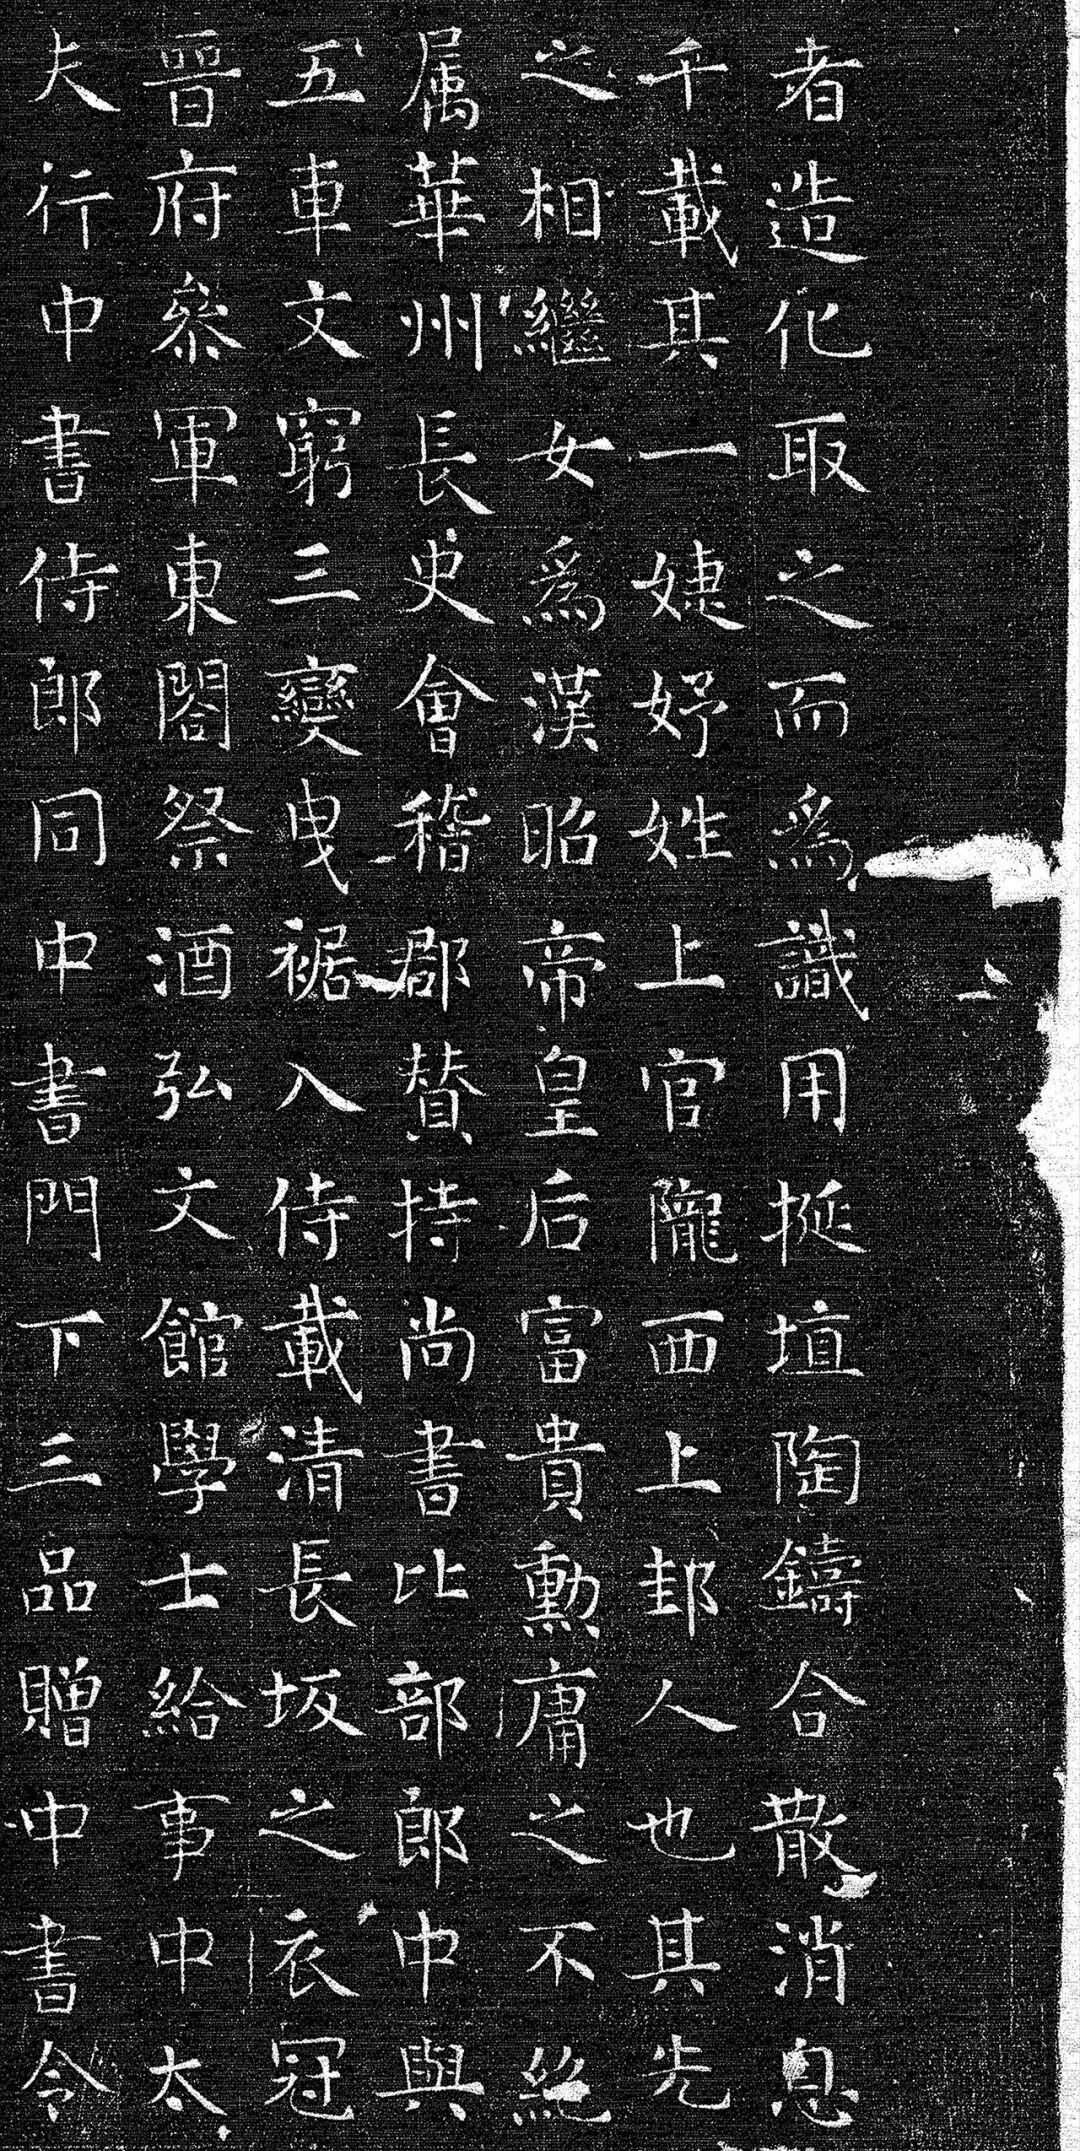 者造化取之而為識用挻埴陶鑄合散消息
千載其一婕妤姓上官隴西上邽人也其先
之相繼女為漢昭帝皇后富貴勳庸之不絕
属華州長史會稽郡賛持尚書比部郎中與
五車文窮三變曳裾入侍載清長坂之衣冠
晉府參軍東閤祭酒弘文館學士給事中太
夫行中書侍郎同中書門下三品贈中書令